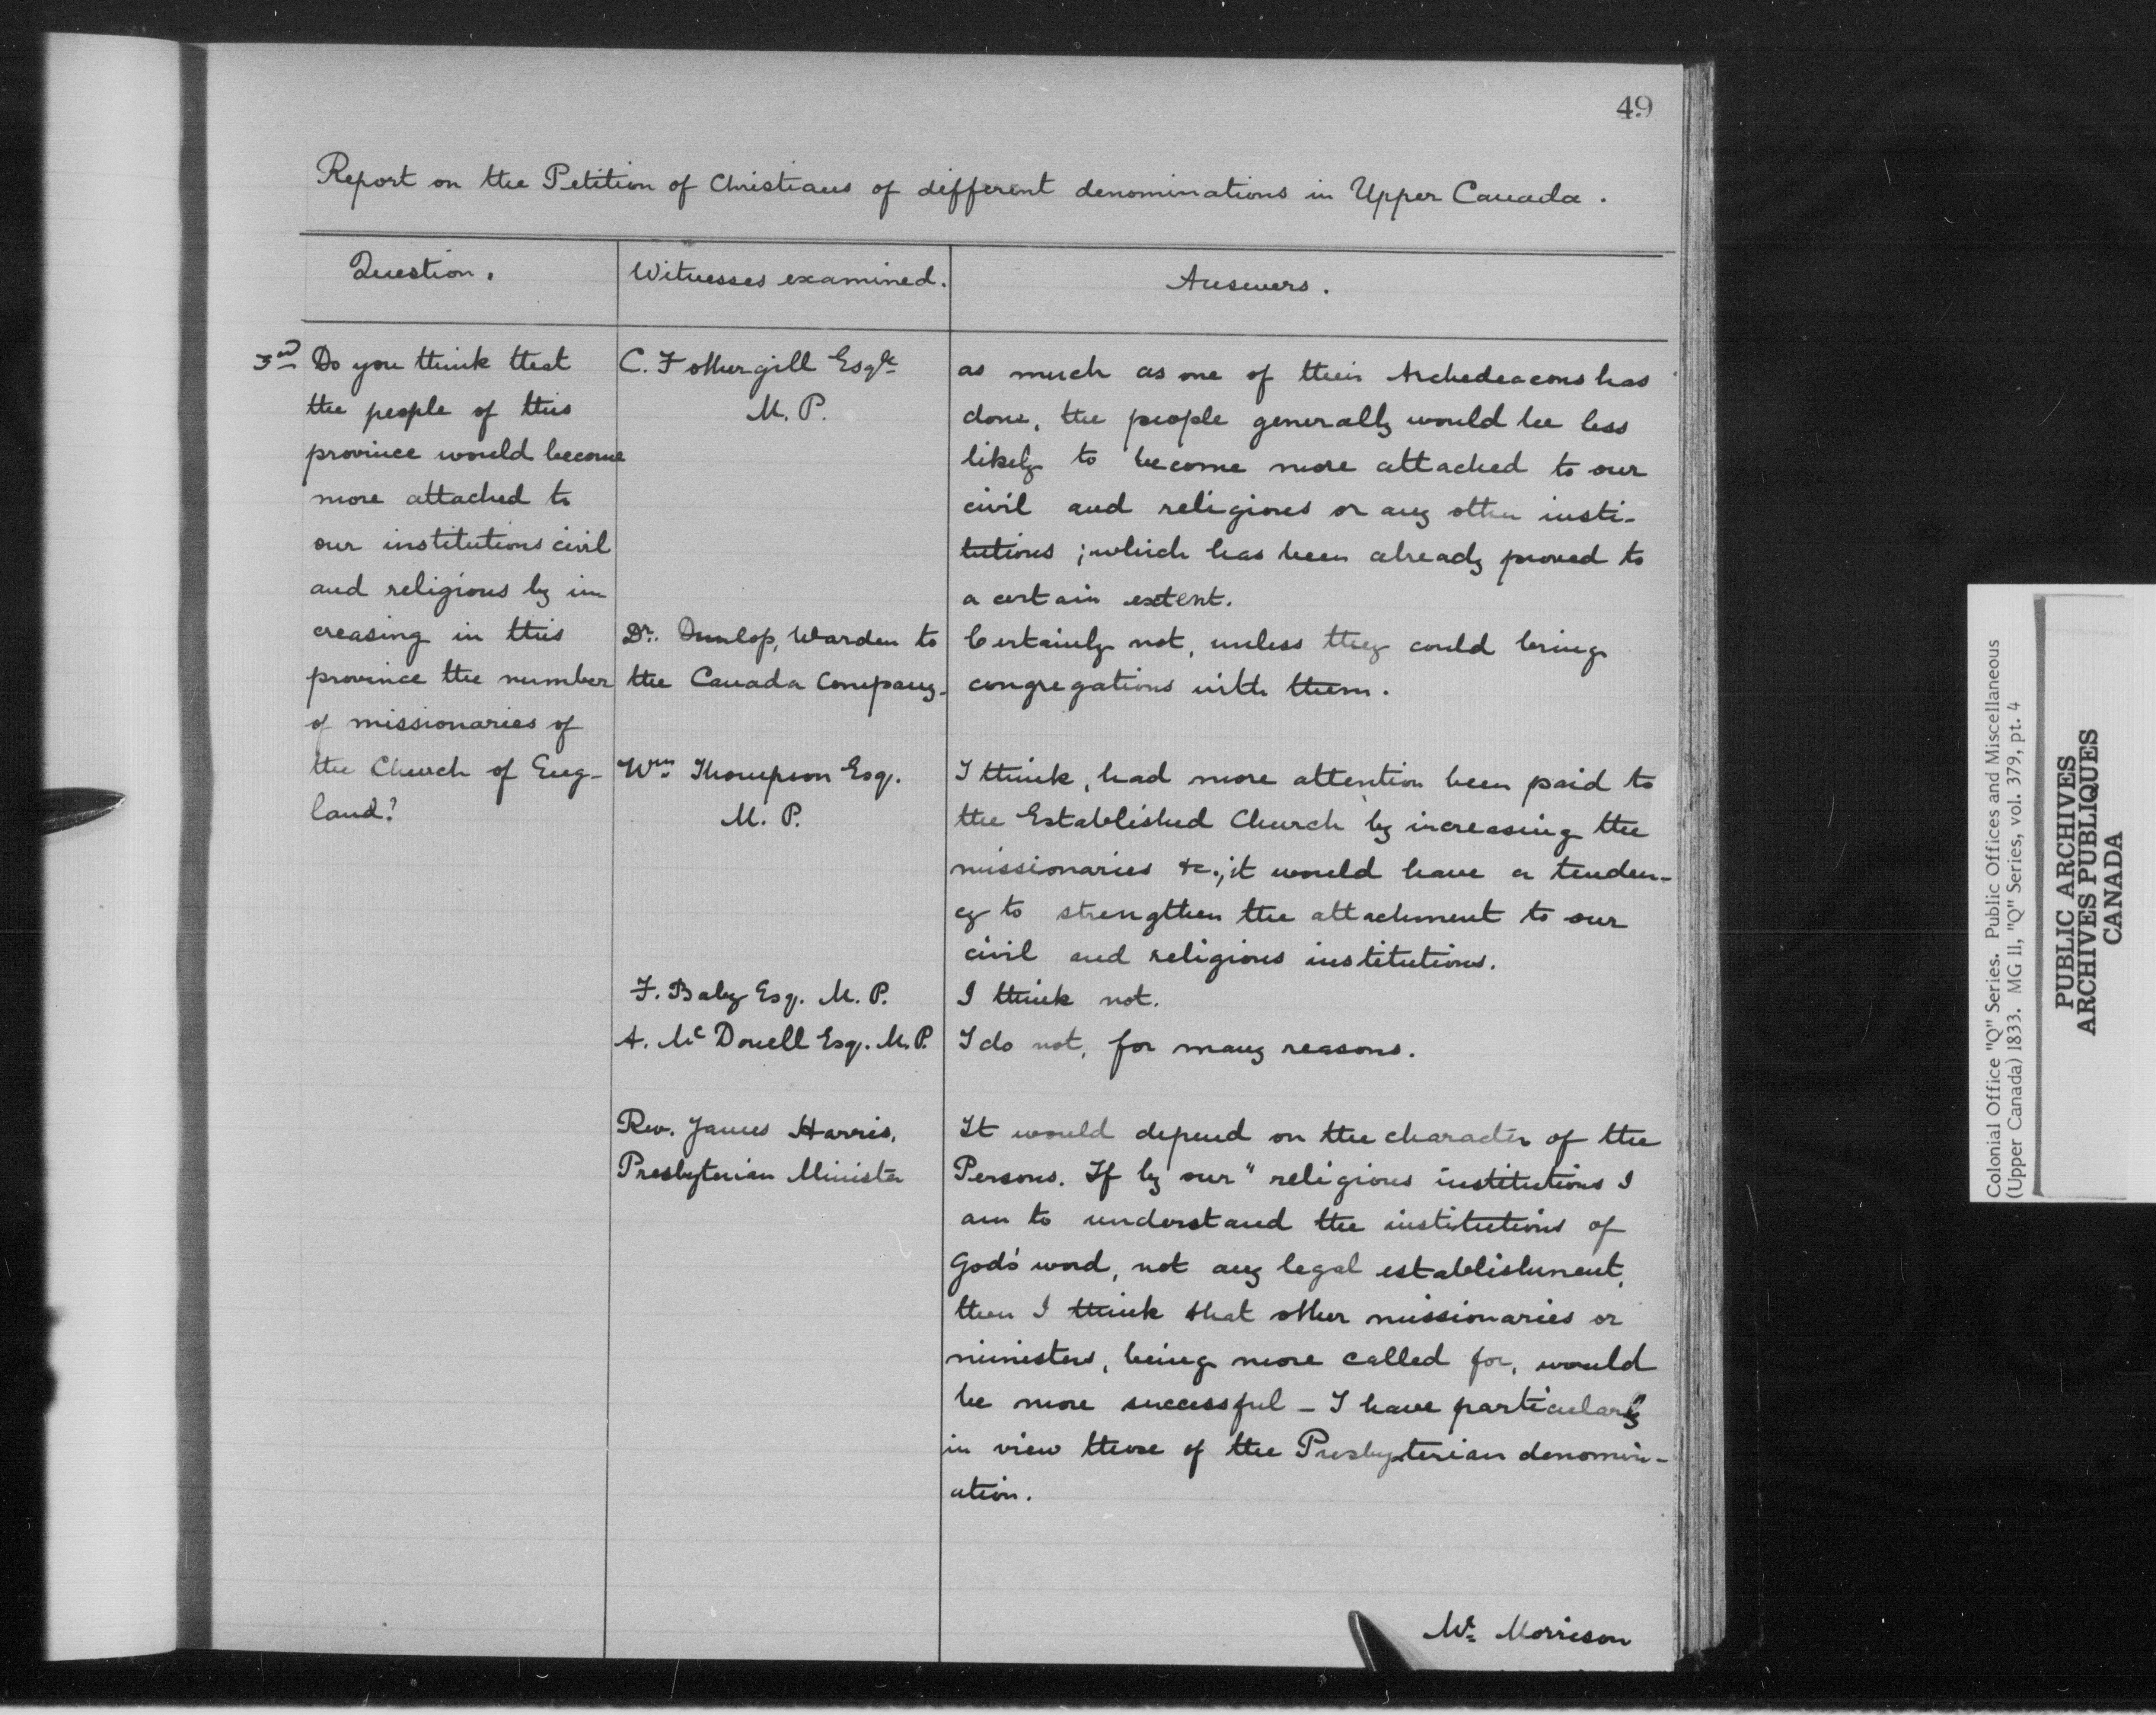 49
Report on the Petition of Christians of different denominations in Upper Canada.
Question.
Witnesses examined.
Answers.
3rd Do you think that
the people of this
province would become
more attached to
our institutions civil
and religious by in
creasing in this
province the number
of missionaries of
the Church of Eng-
land?
C. Fothergill Esqre
M. P.
as much as one of their Archedeacons has
done, the people generally would be less
likely to become more attached to our
civil and religious or any other insti-
tutions; which has been already proved to
a certain extent.
Dr. Dunlop, Warden to
the Canada Company.
Certainly not, unless they could bring
congregations with them.
Wm. Thompson Esq.
M. P.
I think, had more attention been paid to
the Established Church by increasing the
missionaries &c., it would have a tenden-
cy to strengthen the attachment to our
civil and religious institutions.
F. Baby Esq. M. P.
I think not.
A. McDonell Esq. M.P.
I do not, for many reasons.
Rev. James Harris,
Presbyterian Minister
It would depend on the character of the
Persons. If by our "religious institutions I
am to understand the institutions of
God's word, not any legal establishment,
then I think that other missionaries or
ministers, being more called for, would
be more successful - I have particularly
in view those of the Presbyterian denomin-
ation.
Mr. Morrison
Colonial Office "Q" Series. Public Offices and Miscellaneous
(Upper Canada) 1833. MG 11, "Q" Series, vol. 379, pt. 4
PUBLIC ARCHIVES
ARCHIVES PUBLIQUES
CANADA